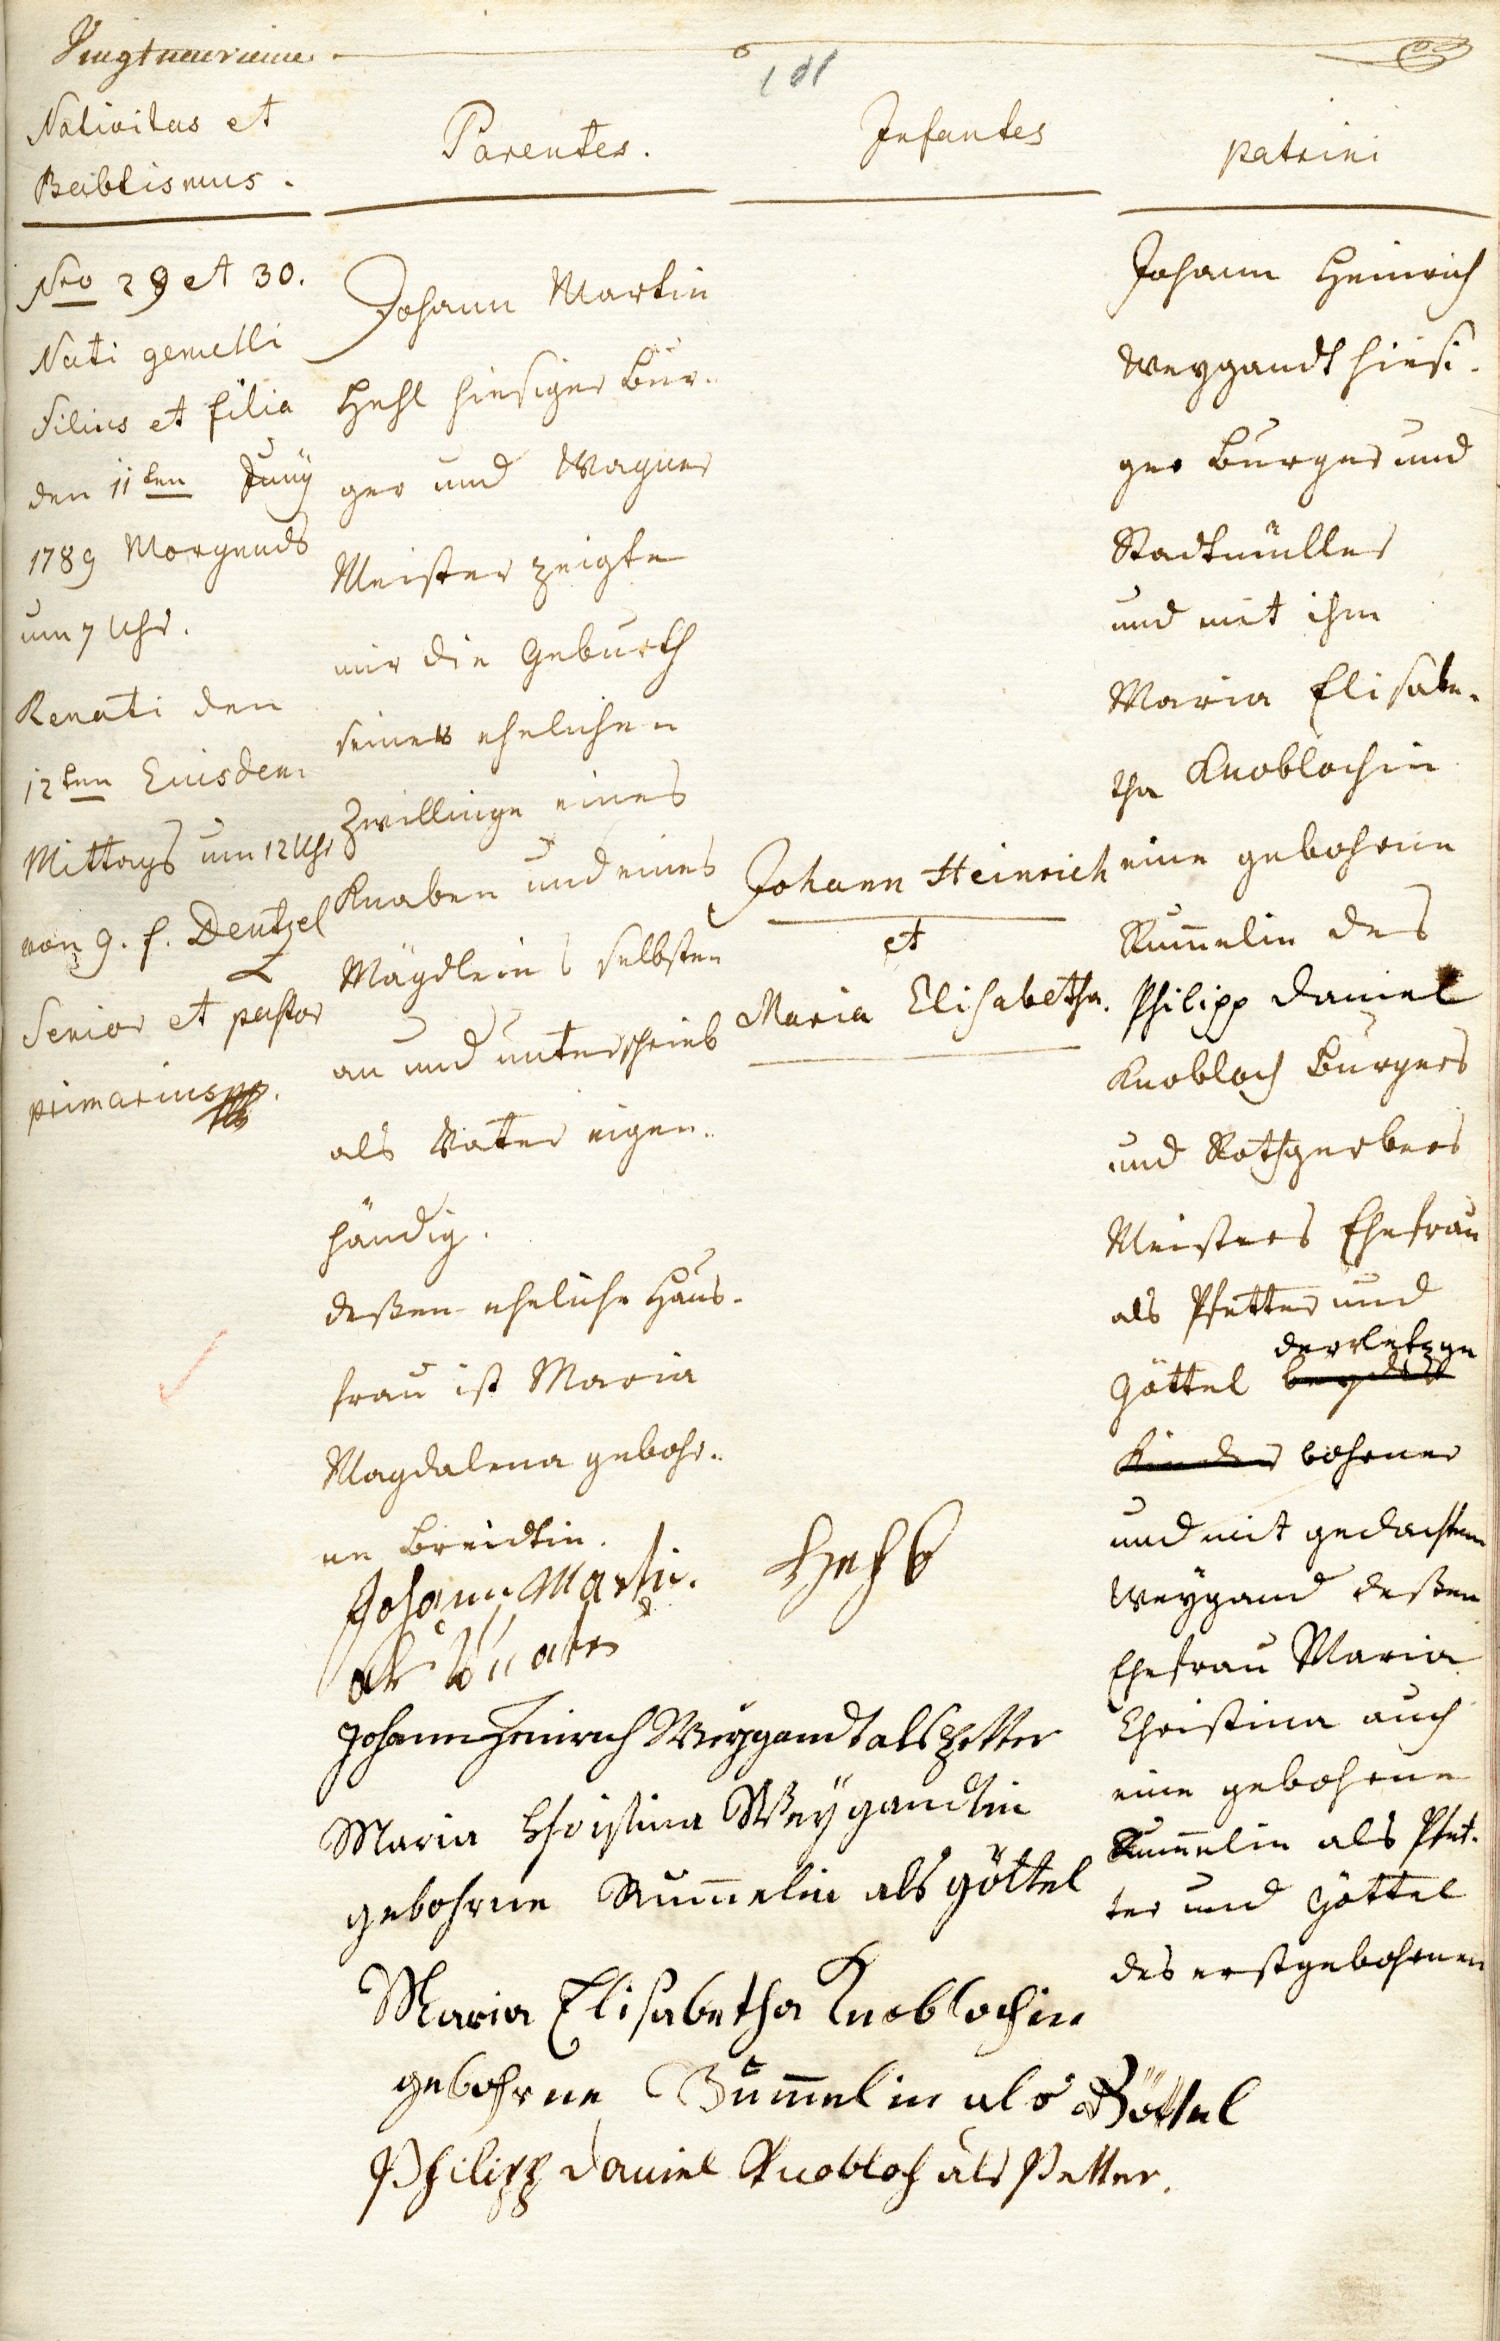 Vingtneuvieme
101
Nativitas et
Babtismus.
Nro 29 et 30.
Nati gemelli
Filius et filia
den 11ten Junÿ
1789 Morgends
um 7 Uhr.
Renati den
12ten Euisdem
Mittags um 12 Uhr
von g. f. Dentzel
Senior et pastor
primarius
Parentes.
Johann Martin
Hehl hiesiger Bur-
ger und Wagner
Meister zeigte
mir die Geburth
seiner ehelichen
Zwillinge eines
Knaben und eines
Mägdleins selbsten
an und unterschrieb
als Vater eigen-
händig.
deßen eheliche Haus-
frau ist Maria
Magdalena gebohr-
ne Breidtin.
Infantes
Johann Heinrich
et
Maria Elisabetha.
patrini
Johann Heinrich
Weygandt hiesi-
ger Burger und
Stadtmüller
und mit ihm
Maria Elisabe-
tha Knoblochin
eine gebohrne
Rum̄elin des
Philipp Daniel
Knobloch Burgers
und Rothgerbers
Meisters Ehefrau
als Pfetter und
derletzge
Göttel beyder
Kinder bohrner
und mit gedachtem
Weygand deßen
Ehefrau Maria
Christina auch
eine gebohrne
Rum̄elin als Pfet-
ter und Göttel
des erstgebohrnen
Johann Martin Hehl
als Vater
Johann Heinrich Weygandt als Petter
Maria Christina Weÿgandtin
gebohrne Rum̄elin als göttel
Maria Elisabetha Knoblochin
gebohrne Rum̄elin als Göttel
Philipp Daniel Knobloch als Petter.